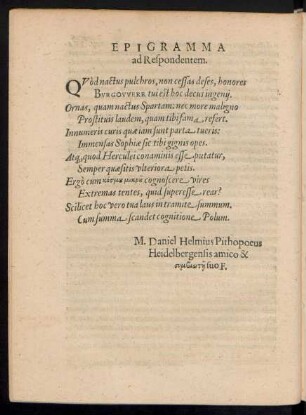 EPIGRAMMA
ad Respondentem.
QVòd nactus pulchros, non cessas deses, honores
BVRGOVVERE tui est hoc decus ingenij.
Ornas, quam nactus Spartam: nec more maligno
Prostituis laudem, quam tibi fama refert.
Innumeris curis quæ iam sunt parta tueris:
Immensas Sophiæ sic tibi gignis opes.
Atq, quod Herculei conaminis esse putatur,
Semper quæsitis vlteriora petis.
Ergò cum κόσμου μικροῦ cognoscere vires
Extremas tentes, quid superesse rear?
Scilicet hoc vero tua laus in tramite summum.
Cum summa scandet cognitione Polum.
M. Daniel Helmius Pithopoeus
Heidelbergensis amico &
suo F.